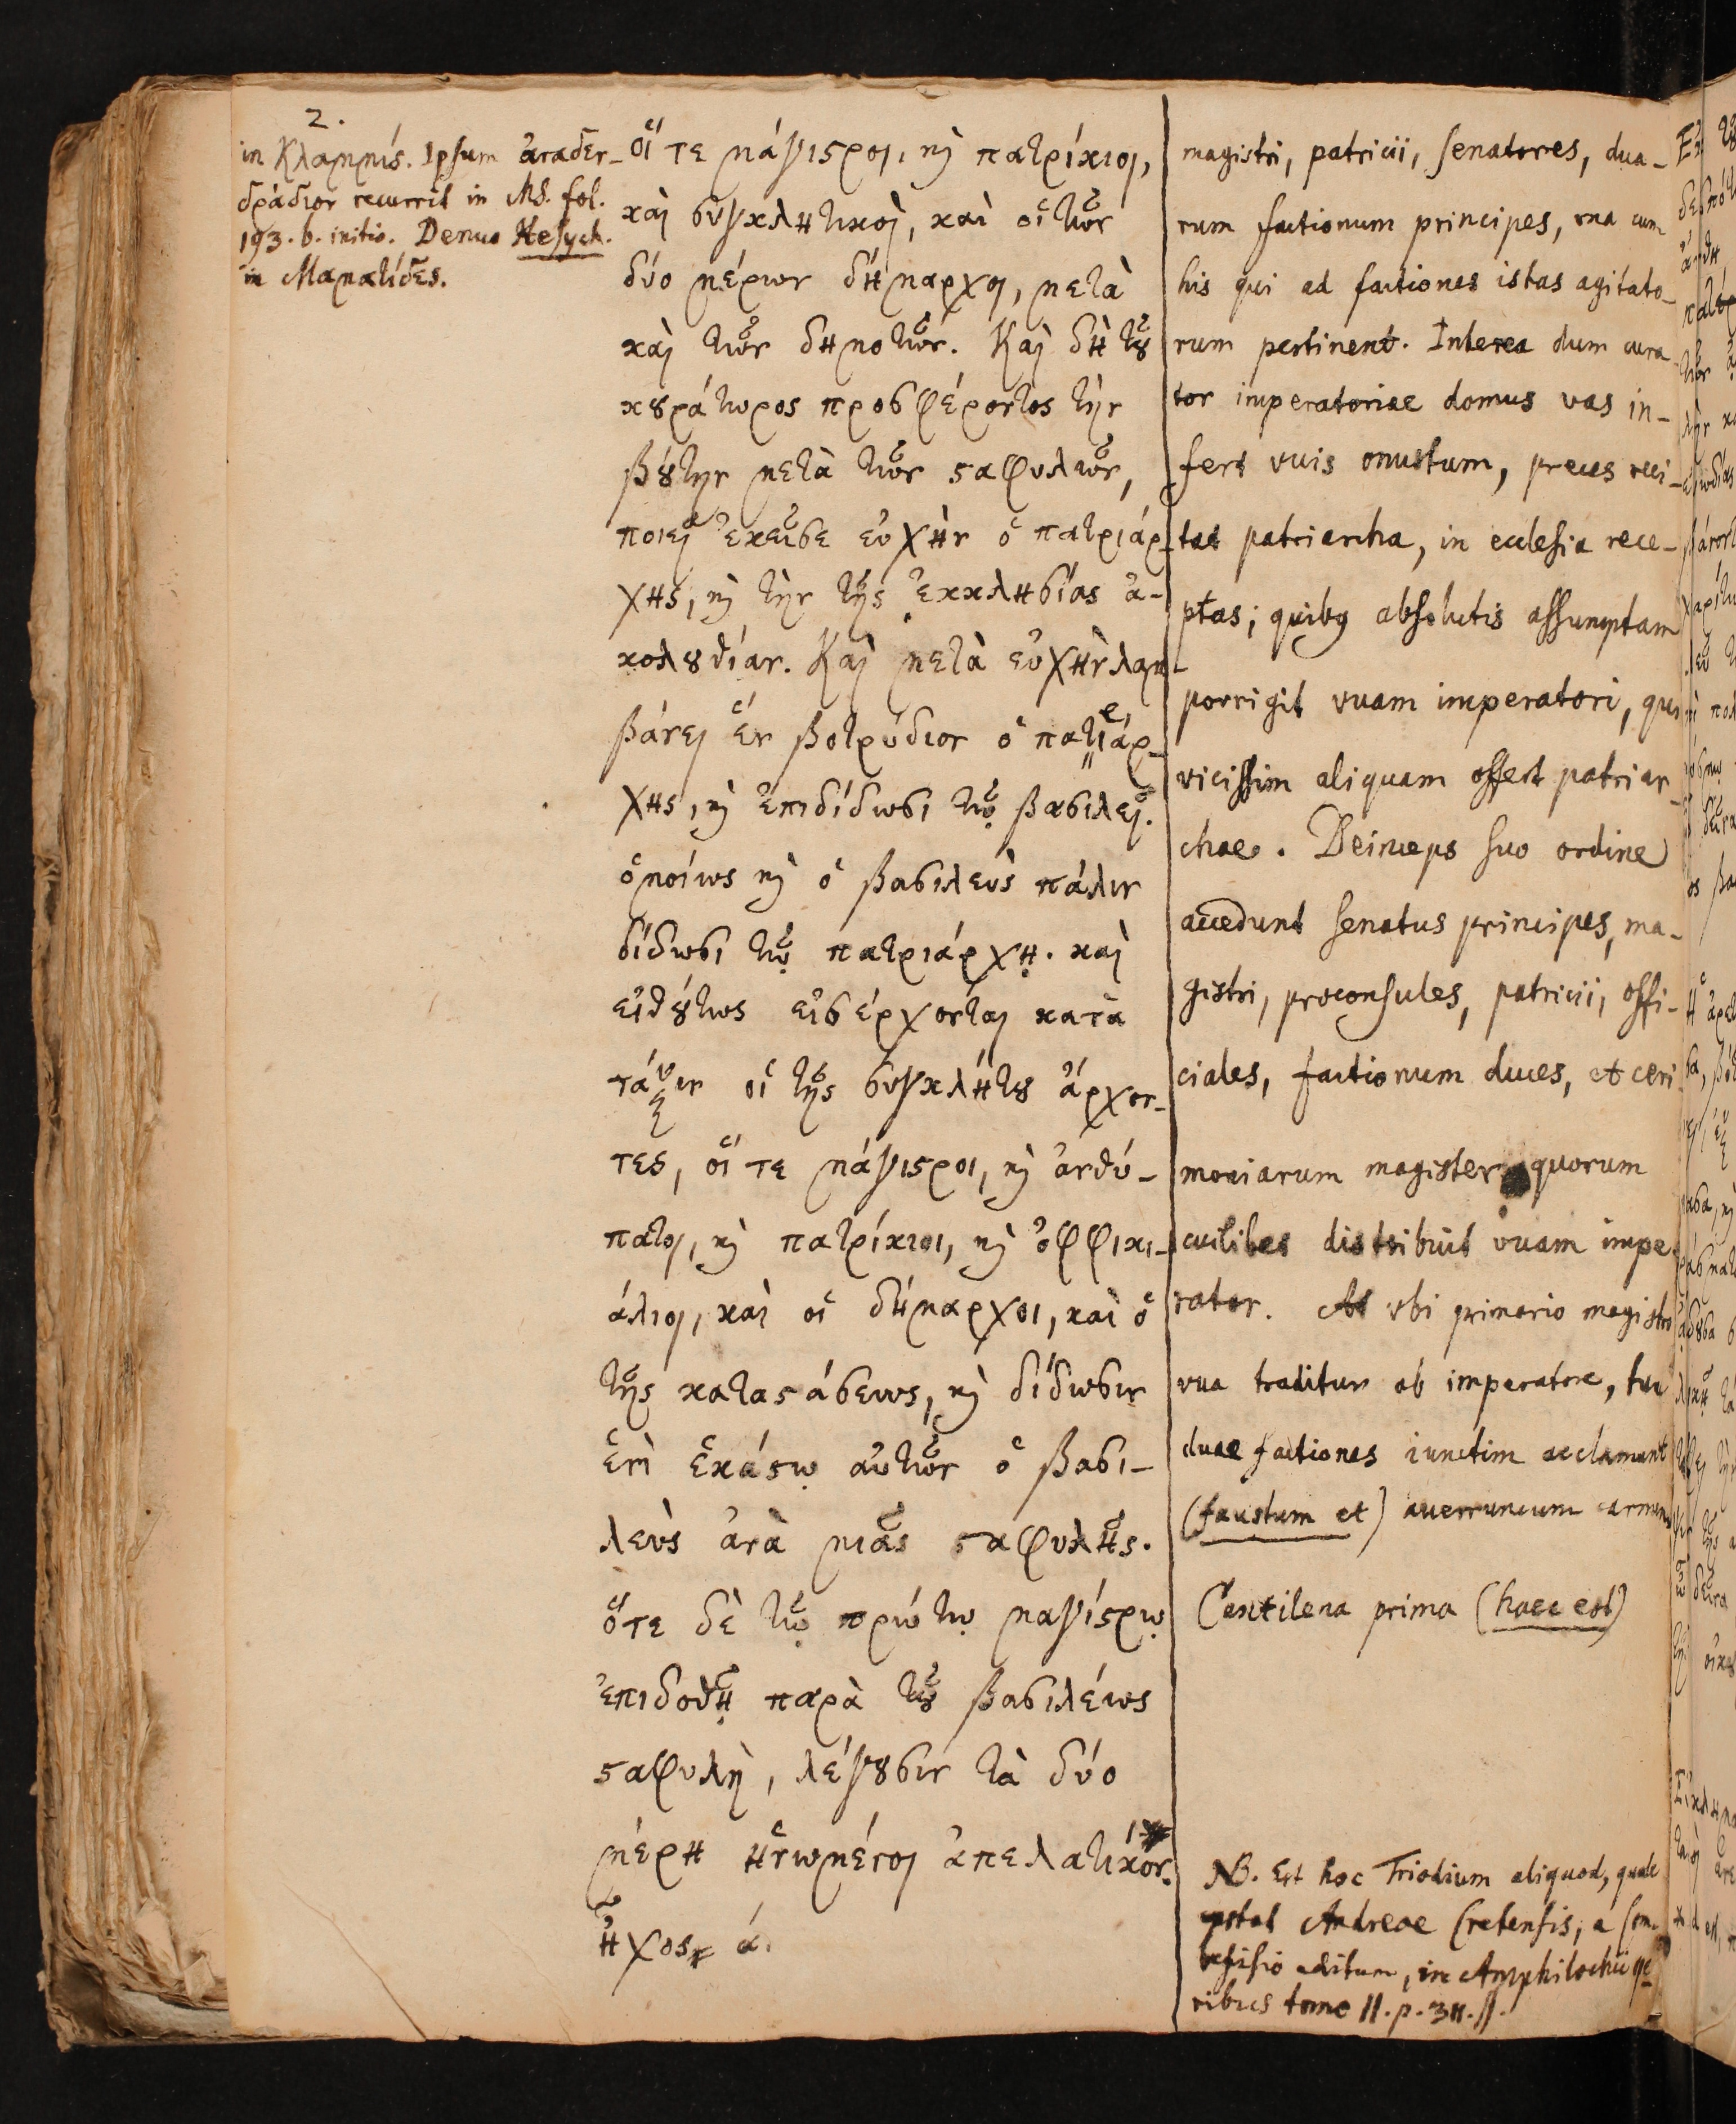 2.
in Κλαμμίς. Ipsum ἀναδεν-
δράδιον recurrit in Ms. fol.
193. b. initio. Denuo Hesych.
in Μαματίδες.
οἵ τε μάγιστροι, καὶ πατρίκιοι,
καὶ συγκλητικοὶ, καὶ οἱ τῶν
δύο μέρων δήμαρχοι, μετὰ
καὶ τῶν δημοτῶν. Καὶ δὴ τοῦ
κουράτωρος προσφέροντος τὴν
βούτην μετὰ τῶν σταφυλῶν,
ποιεῖ ἐκεῖσε εὐχὴν ὁ πατριάρ-
χης, καὶ τὴν τῆς ἐκκλησίας ἀ-
κολουθίαν. Καὶ μετὰ εὐχὴν λαμ-
βάνει ἓν βοτρύδιον ὁ πατριάρ-
χης, καὶ ἐπιδίδωσι τῷ βασιλεῖ.
ὁμοίως καὶ ὁ βασιλεὺς πάλιν
δίδωσι τῷ πατριάρχῃ. καὶ
εἰθούτως εἰσέρχονται κατὰ
τάξιν οἱ τῆς συγκλήτου ἄρχον-
τες, οἵ τε μάγιστροι, καὶ ἀνθύ-
πατοι, καὶ πατρίκιοι, καὶ ὀφφικι-
άλιοι, καὶ οἱ δήμαρχοι, καὶ ὁ
τῆς καταστάσεως, καὶ δίδωσιν
ἑνὶ ἑκάστῳ αὐτῶν ὁ βασι-
λεὺς ἀνὰ μιᾶς σταφυλῆς.
ὅτε δὲ τῷ πρώτῳ μαγίστρῳ
ἐπιδοθῇ παρὰ τοῦ βασιλέως
σταφυλὴ, λέγουσιν τὰ δύο
μέρη ἡνωμένοι ἀπελατικόν.
ἦχος ά.
magistri, patricii, senatores, dua-
rum factionum principes, vna cum
his qui ad factiones istas agitato-
rum pertinent. Interea dum cura-
tor imperatoriae domus vas in-
fert vuis onustum, preces reci-
tat patriarcha, in ecclesia rece-
ptas; quibus absolutis assumptam
porrigit vuam imperatori, qui
vicissim aliquam offert patriar-
chae. Deinceps suo ordine
accedunt senatus principes, ma-
gistri, proconsules, patricii, offi-
ciales, factionum duces, et ceri-
moniarum magister, quorum
cuilibet distribuit vuam impe-
rator. At vbi primario magistro
vua traditur ab imperatore, tum
duae factiones iunctim acclamant
(faustum et) auerruncum carmen
Cantilena prima (haec est)
NB. Est hoc Triodium aliquod, quale
exstat Andreae Cretensis, a Com-
befisio editum, in Amphilochii ope-
ribus tomo II. p.